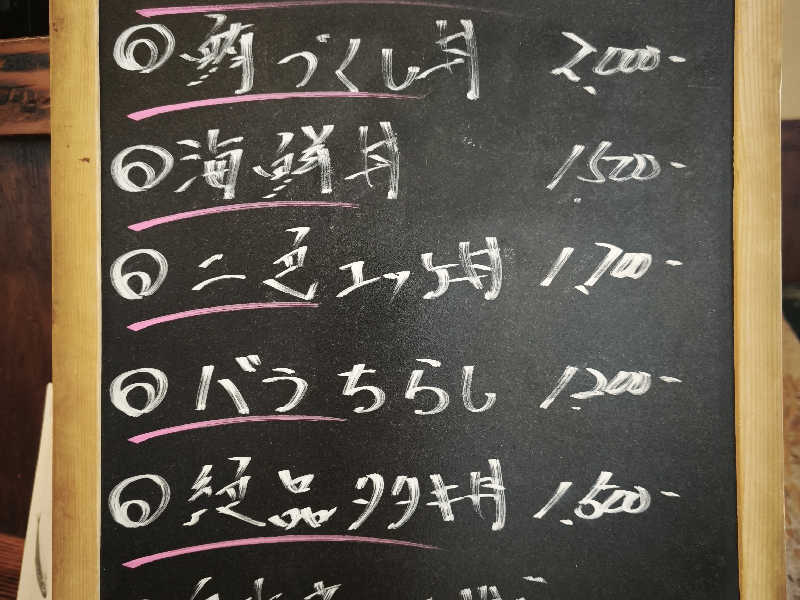 ◎鮪づくし丼 2,000-
◎海鮮丼 1,500-
◎二色エッケ丼 1,700-
◎バラちらし 1,200-
◎絶品タタキ丼 1,500-